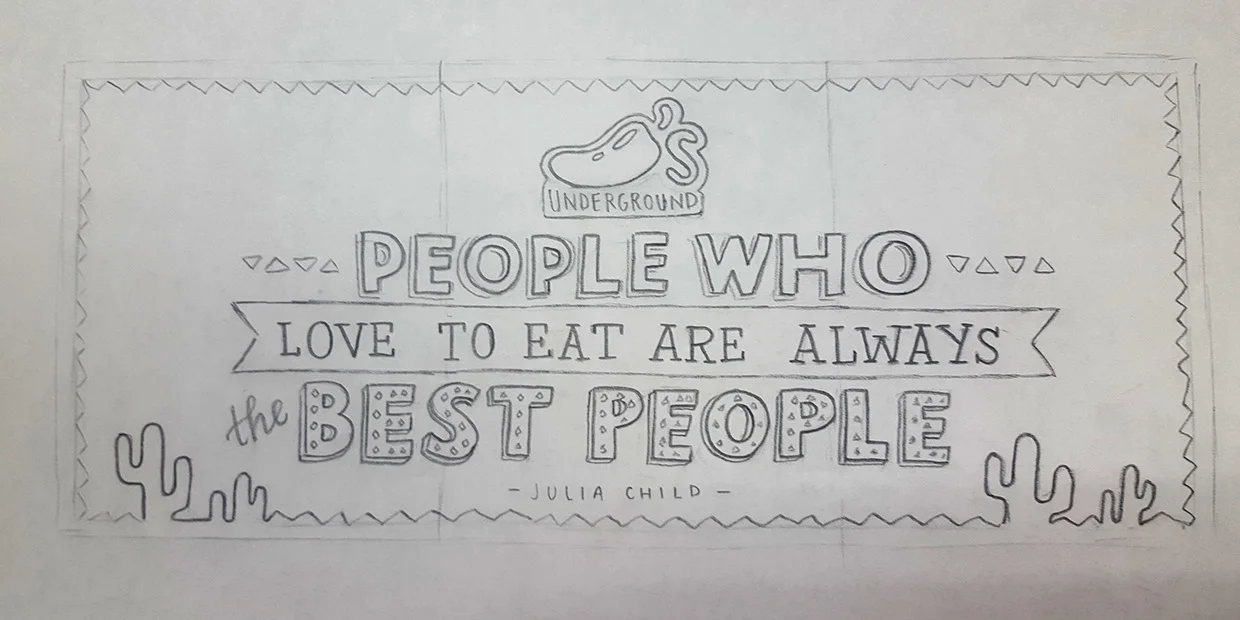 'S
UNDERGROUND
PEOPLE WHO
LOVE TO EAT ARE ALWAYS
the BEST PEOPLE
- JULIA CHILD -